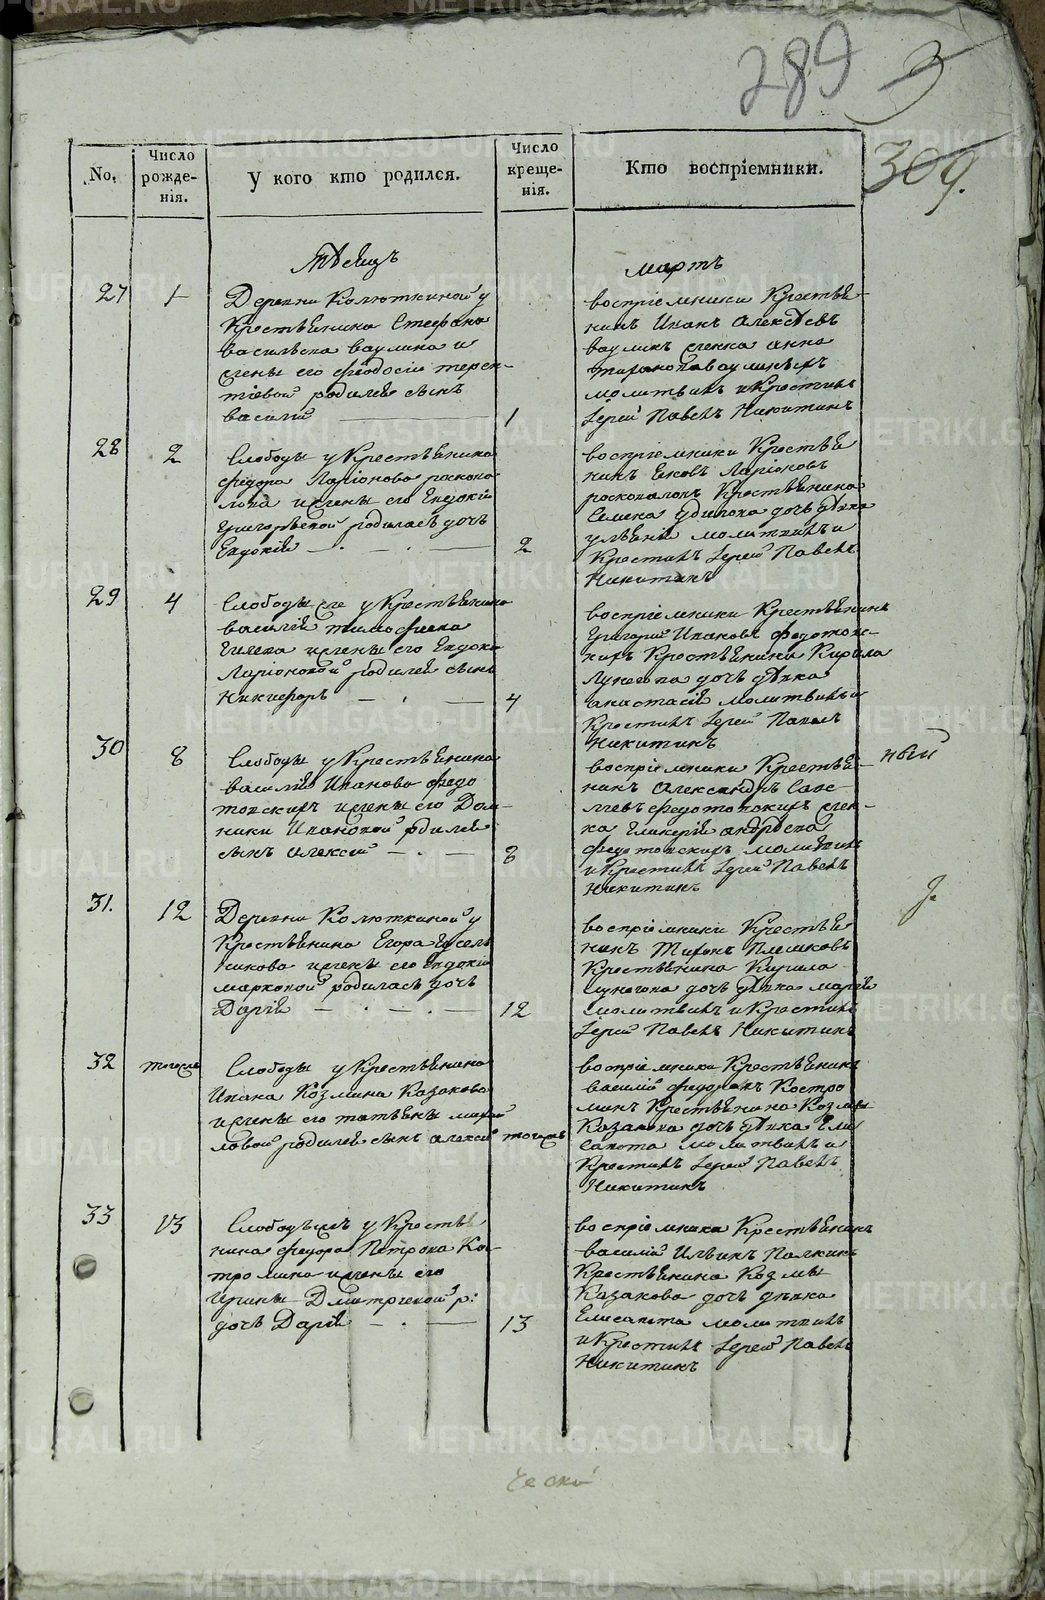 289 3
309.
No.
Число рожде-нія.
У кого кто родился.
Число креще-нія.
Кто воспріемники.
Мѣсяцъ
мартъ
27
1
Деревни Колюткиной у
Крестьянина Стефана
васильева ваулина и
жены его феодосіи терен-
тіевой родился сынъ
василій
1
воспріемники Крестья-
нинъ Иванъ Алексѣевъ
ваулинъ женка анна
ваулиныхъ
молитвилъ и Крестилъ
Іерей Павелъ Никитинъ
28
2
Слободы у Крестьянина
федора Ларіонова раскопа
лова и жены его Евдокіи
Григорьевой родилась дочь
Евдокія
2
воспріемники Крестья
нинъ Ларіоновъ
раскопаловъ Крестьянина
Семена дочь дѣвка
улѣянія молитвилъ и
Крестилъ Іерей Павелъ
Никитинъ
29
4
Слободы же у Крестьянина
василія тимофеева
и жены его Евдокіи
Ларіоновой родился сынъ
Никифоръ
4
воспріемники Крестьянинъ
Григорій Ивановъ федотов-
скихъ Крестьянина Кирила
Лунегова дочь дѣвка
анастасія молитвилъ и
Крестилъ Іерей Павелъ
Никитинъ
30
8
Слободы у Крестьянина
василія Иванова федо
товскихъ и жены его Дом-
ники Ивановой родился
сынъ алексей
8
воспріемники Крестья-
нинъ Александръ Савс
льевъ федотовскихъ жен-
ка Гликерія андрѣева
федотовскихъ молитвилъ
и Крестилъ Іерей Павелъ
Никитинъ
ный
31.
12
Деревни Колюткиной у
Крестьянина Егора Гусель
никова и жены его Евдокіи
марковой родилась дочь
Дарія
12
воспріемники Крестья
нинъ Миронъ Плешковъ
Крестьянина Кирила
Лунегова дочь дѣвка марія
молитвилъ и Крестилъ
Іерей Павелъ Никитинъ
32
тогоже
Слободы у Крестьянина
Ивана Козмина Казакова
и жены его татьяны михай
ловой родился сынъ алексей
тогоже
воспріемники Крестьянинъ
василій федоровъ Костро
минъ Крестьянина Козмы
Казакова дочь дѣвка Ели
савета молитвилъ и
Крестилъ Іерей Павелъ
Никитинъ
33
13
Слободы же у Крестья
нина федора Петрова Ко-
тромина и жены его
Ирины Дмитріевой р:
дочь Дарія
13
воспріемники Крестьянинъ
василій Ильинъ Палкинъ
Крестьянина Козмы
Казакова дочь дѣвка
Елисавета молитвилъ
и Крестилъ Іерей Павелъ
Никитинъ
ческой
METRIKI.GASO-URAL.RU